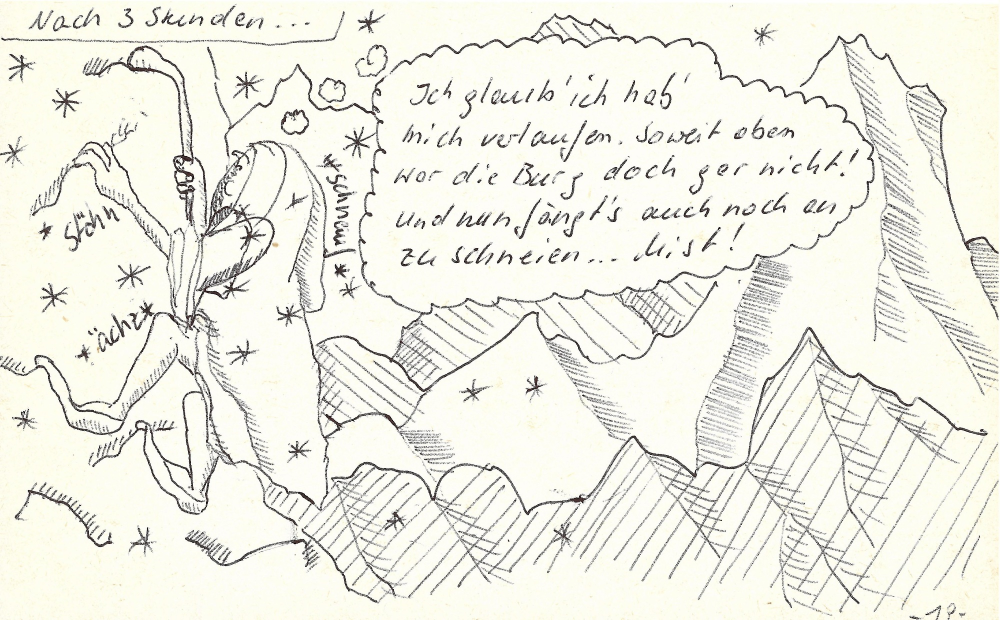 Nach 3 Stunden...
Ich glaub' ich hab'
mich verlaufen. Soweit oben
war die Burg doch gar nicht!
Und nun fängt's auch noch an
zu schneien... Mist!
*schnauf*
* Stöhn
*ächz*
-19-